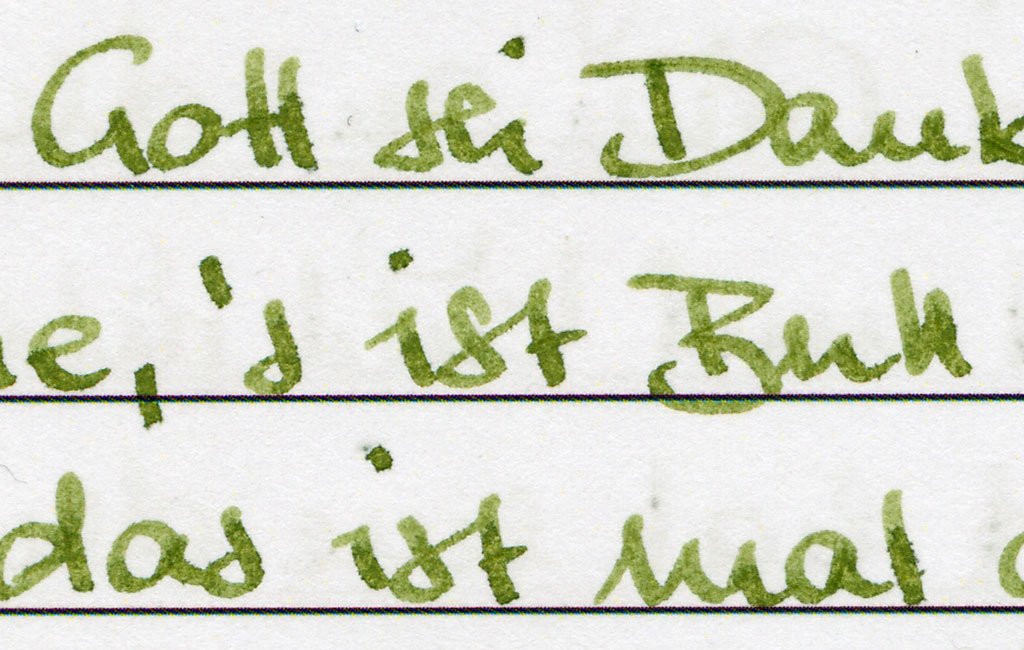 Gott sei Dank
e, 's ist Ruh
das ist mal